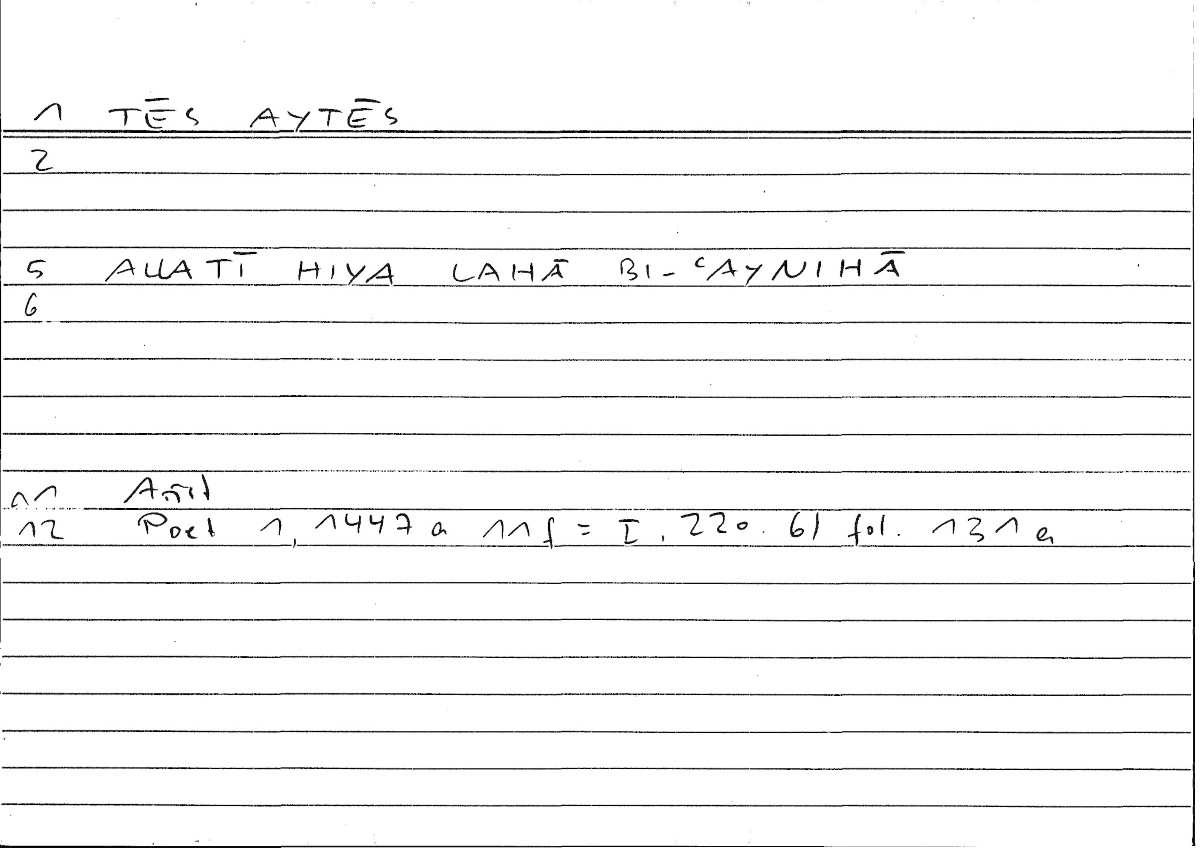 1 TĒS AYTĒS
2
5 ALLATĪ HIYA LAHĀ BI-ʿAYNIHĀ
6
11 Arist
12 Poet 1, 1447 a 11 f = I, 220. 6/ fol. 131 a